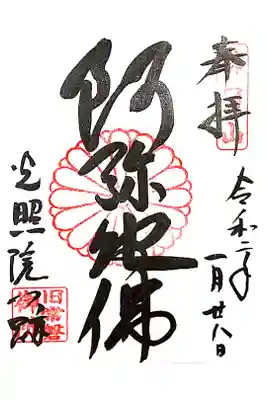 奉拝
令和二年
一月廿八日
阿弥陀佛
光照院門跡
旧常磐